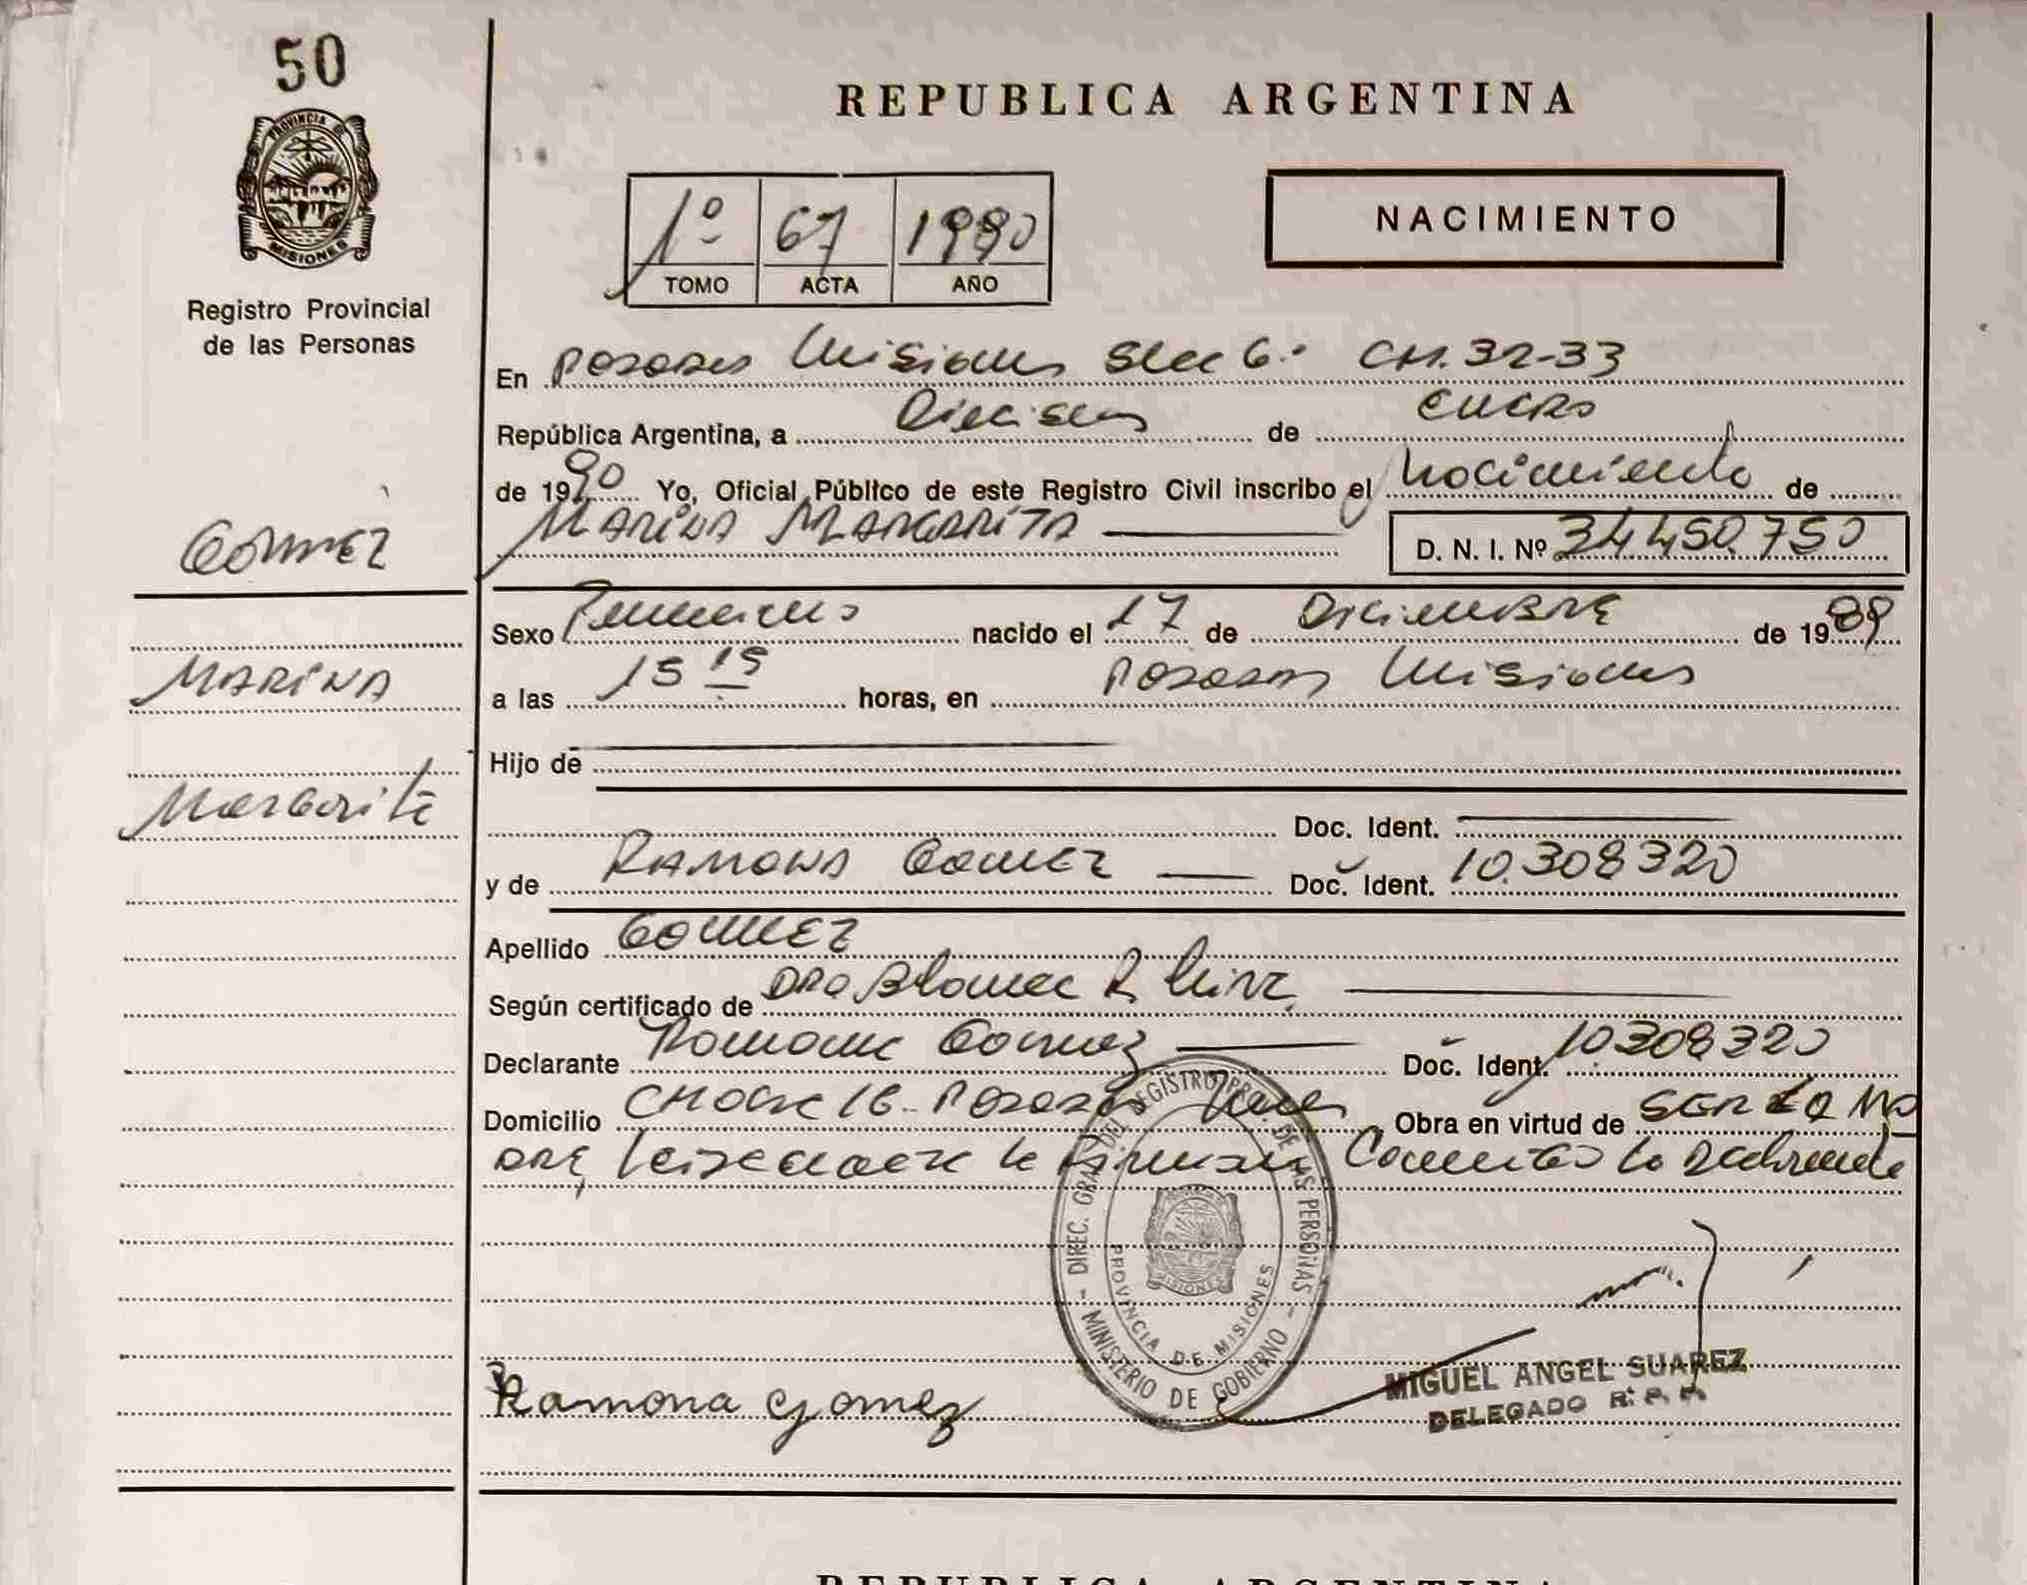 50
PROVINCIA DE
MISIONES
Registro Provincial
de las Personas
REPUBLICA ARGENTINA
1º 67 1990
TOMO ACTA AÑO
NACIMIENTO
En Posadas Misiones Secc 6. CH. 32-33
República Argentina, a Dieciseis de Enero
de 1990 Yo, Oficial Público de este Registro Civil inscribo el Nacimiento de
MARINA MARGARITA D. N. I. Nº 34.450.750
GOMEZ
MARINA
Margarita
Sexo Femenino nacido el 17 de Diciembre de 1989
a las 15 15 horas, en Posadas Misiones
Hijo de
Doc. Ident.
y de RAMONA GOMEZ Doc. Ident. 10.308320
Apellido GOMEZ
Según certificado de DRA Blanca R.
Declarante Ramona Gomez Doc. Ident. 10308320
Domicilio 16 Posadas Obra en virtud de SER LA MA
DRE la la Declarante
DIREC. GRAL. DEL REGISTRO PROV. DE LAS PERSONAS
MINISTERIO DE GOBIERNO
PROVINCIA DE MISIONES
MISIONES
Ramona Gomez
MIGUEL ANGEL SUAREZ
DELEGADO R. P. P.
REPUBLICA ARGENTINA